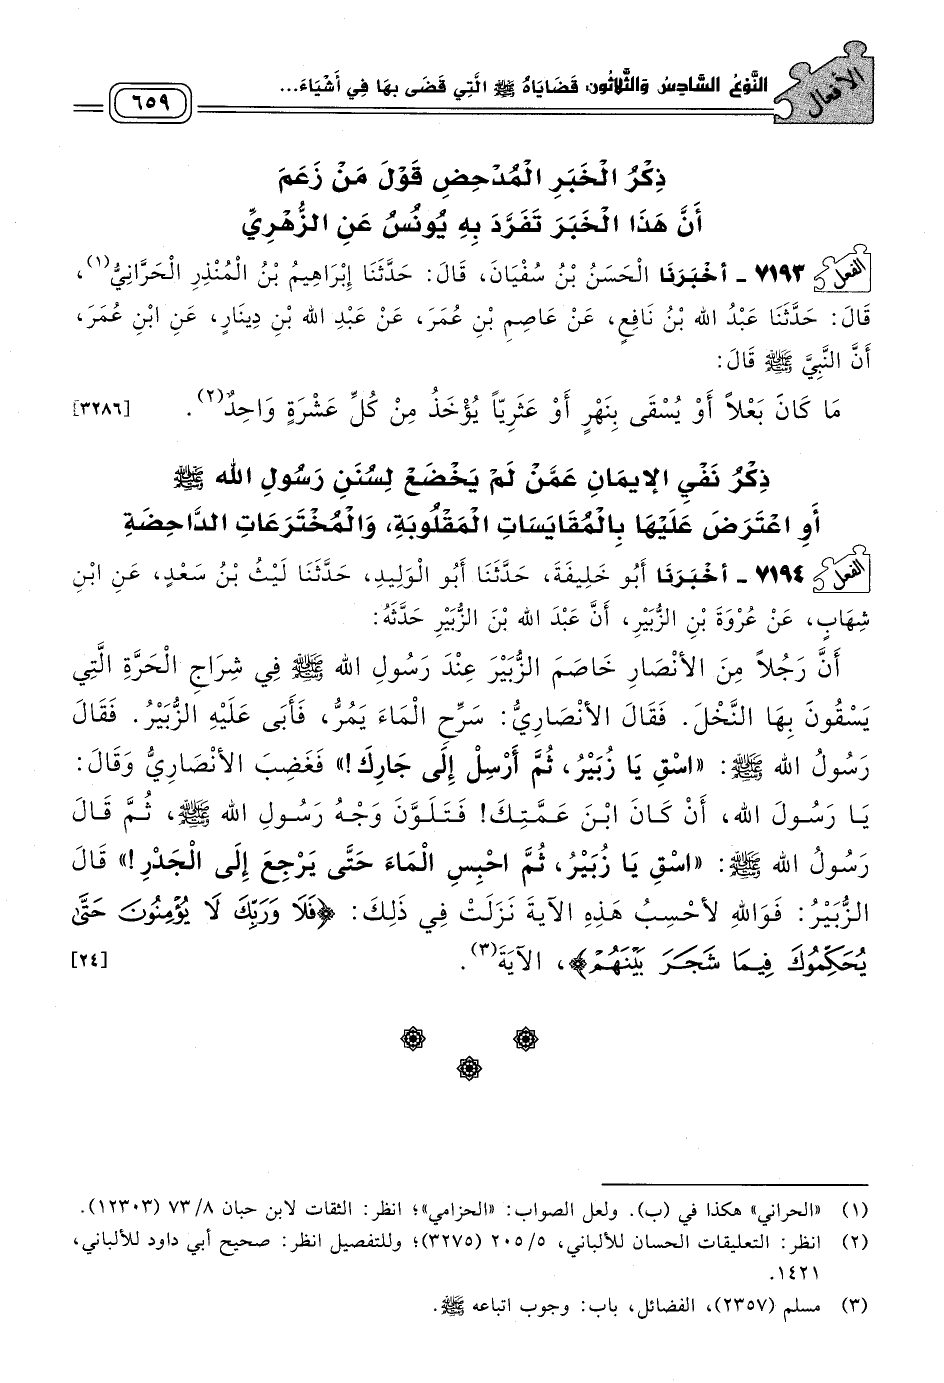 الأفعال
النَّوْعُ السَّادِسُ وَالثَّلاثُونَ: قَضَايَاهُ ﷺ الَّتِي قَضَى بِهَا فِي أَشْيَاءَ...
٦٥٩
ذِكْرُ الْخَبَرِ الْمُدْحِضِ قَوْلَ مَنْ زَعَمَ
أَنَّ هَذَا الْخَبَرَ تَفَرَّدَ بِهِ يُونُسُ عَنِ الزُّهْرِيِّ
الفعل ٧١٩٣ - أَخْبَرَنَا الْحَسَنُ بْنُ سُفْيَانَ، قَالَ: حَدَّثَنَا إِبْرَاهِيمُ بْنُ الْمُنْذِرِ الْحَرَّانِيُّ(١)،
قَالَ: حَدَّثَنَا عَبْدُ الله بْنُ نَافِعٍ، عَنْ عَاصِمِ بْنِ عُمَرَ، عَنْ عَبْدِ الله بْنِ دِينَارٍ، عَنِ ابْنِ عُمَرَ،
أَنَّ النَّبِيَّ ﷺ قَالَ:
مَا كَانَ بَعْلاً أَوْ يُسْقَى بِنَهْرٍ أَوْ عَثَرِيّاً يُؤْخَذُ مِنْ كُلِّ عَشْرَةٍ وَاحِدٌ(٢). [٣٢٨٦]
ذِكْرُ نَفْيِ الإيمَانِ عَمَّنْ لَمْ يَخْضَعْ لِسُنَنِ رَسُولِ الله ﷺ
أَوِ اعْتَرَضَ عَلَيْهَا بِالْمُقَايَسَاتِ الْمَقْلُوبَةِ، وَالْمُخْتَرَعَاتِ الدَّاحِضَةِ
الفعل ٧١٩٤ - أَخْبَرَنَا أَبُو خَلِيفَةَ، حَدَّثَنَا أَبُو الْوَلِيدِ، حَدَّثَنَا لَيْثُ بْنُ سَعْدٍ، عَنِ ابْنِ
شِهَابٍ، عَنْ عُرْوَةَ بْنِ الزُّبَيْرِ، أَنَّ عَبْدَ الله بْنَ الزُّبَيْرِ حَدَّثَهُ:
أَنَّ رَجُلاً مِنَ الأَنْصَارِ خَاصَمَ الزُّبَيْرَ عِنْدَ رَسُولِ الله ﷺ فِي شِرَاجِ الْحَرَّةِ الَّتِي
يَسْقُونَ بِهَا النَّخْلَ. فَقَالَ الأَنْصَارِيُّ: سَرِّحِ الْمَاءَ يَمُرُّ، فَأَبَى عَلَيْهِ الزُّبَيْرُ. فَقَالَ
رَسُولُ الله ﷺ: «اسْقِ يَا زُبَيْرُ، ثُمَّ أَرْسِلْ إِلَى جَارِكَ!» فَغَضِبَ الأَنْصَارِيُّ وَقَالَ:
يَا رَسُولَ الله، أَنْ كَانَ ابْنَ عَمَّتِكَ! فَتَلَوَّنَ وَجْهُ رَسُولِ الله ﷺ، ثُمَّ قَالَ
رَسُولُ الله ﷺ: «اسْقِ يَا زُبَيْرُ، ثُمَّ احْبِسِ الْمَاءَ حَتَّى يَرْجِعَ إِلَى الْجَدْرِ!» قَالَ
الزُّبَيْرُ: فَوَاللهِ لأَحْسِبُ هَذِهِ الآيةَ نَزَلَتْ فِي ذَلِكَ: ﴿فَلَا وَرَبِّكَ لَا يُؤْمِنُونَ حَتَّىٰ
يُحَكِّمُوكَ فِيمَا شَجَرَ بَيْنَهُمْ﴾، الآيَةَ(٣). [٢٤]
(١) «الحراني» هكذا في (ب). ولعل الصواب: «الحزامي»؛ انظر: الثقات لابن حبان ٧٣/٨ (١٢٣٠٣).
(٢) انظر: التعليقات الحسان للألباني، ٢٠٥/٥ (٣٢٧٥)؛ وللتفصيل انظر: صحيح أبي داود للألباني،
١٤٢١.
(٣) مسلم (٢٣٥٧)، الفضائل، باب: وجوب اتباعه ﷺ.